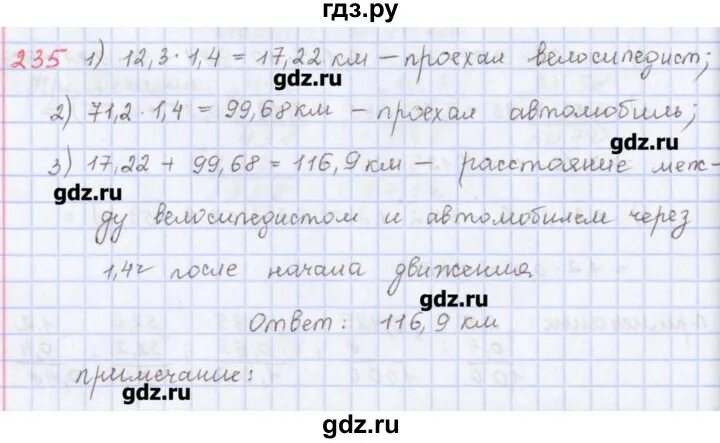 гдз.ру
235 1) 12,3 · 1,4 = 17,22 км – проехал велосипедист;
gdz.ru
2) 71,2 · 1,4 = 99,68 км – проехал автомобиль;
gdz.ru
3) 17,22 + 99,68 = 116,9 км – расстояние меж-
gdz.ru
ду велосипедистом и автомобилем через
1,4 ч после начала движения.
gdz.ru
Ответ: 116,9 км
примечание:
gdz.ru
gdz.ru